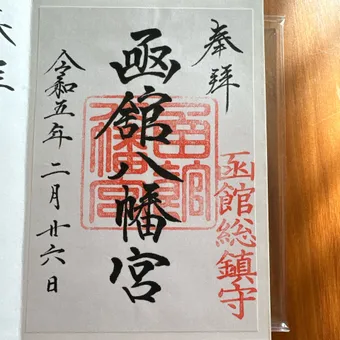 奉拝
函館総鎮守
函館八幡宮
函館八幡宮
令和五年二月廿六日